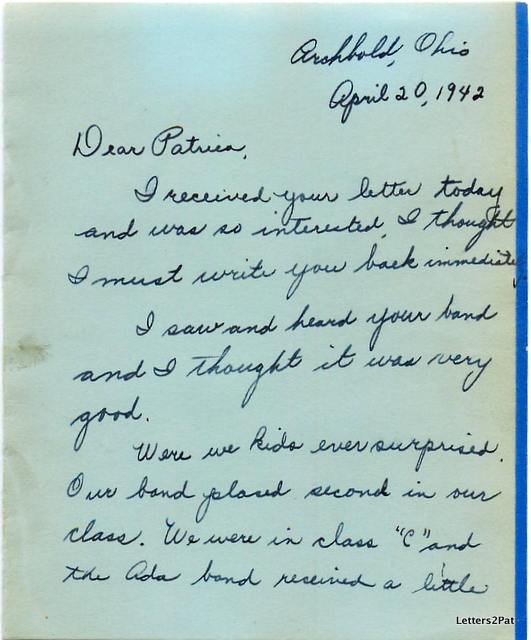 Archbold, Ohio
April 20, 1942
Dear Patricia,
I received your letter today
and was so interested, I thought
I must write you back immediately.
I saw and heard your band
and I thought it was very
good.
Were we kids ever surprised.
Our band placed second in our
class. We were in class "C" and
the Ada band received a little
Letters2Pat